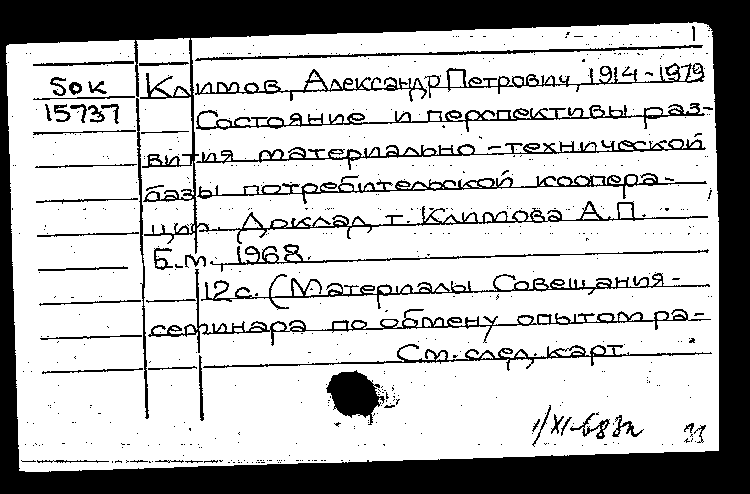 1
50к Климов, Александр Петрович, 1914-1979
15737 Состояние и перспективы раз-
вития материально-технической
базы потребительской коопера-
ции. Доклад т. Климова А.П.
Б.м., 1968.
12с. (Материалы Совещания-
семинара по обмену опытом ра-
См. след. карт.
1/XI-68